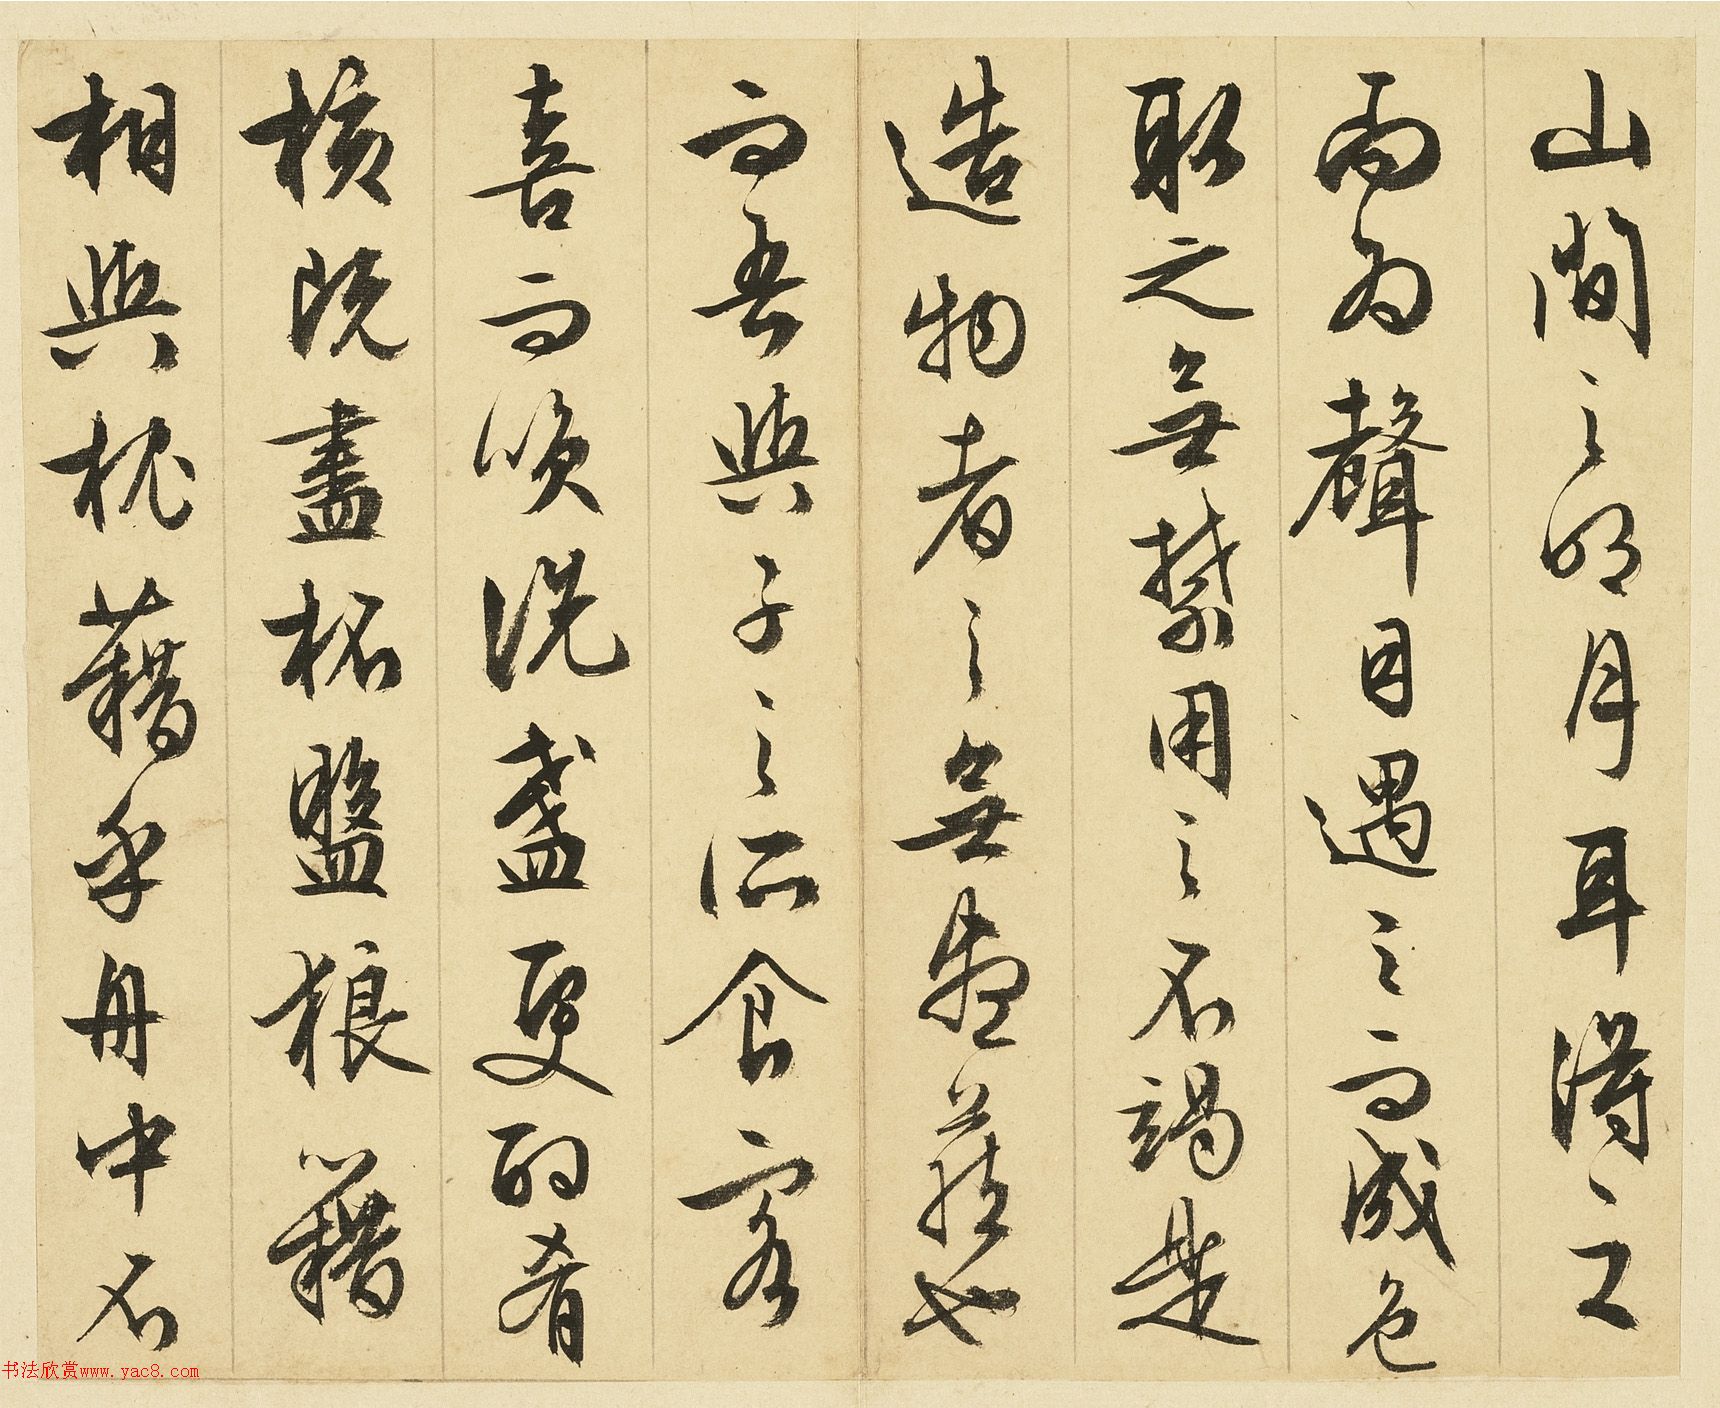 山間之明月耳得之
而為聲目遇之而成色
取之無禁用之不竭是
造物者之無盡藏也
而吾與子之所食客
喜而笑洗盞更酌肴
核既盡杯盤狼藉
相與枕藉乎舟中不
书法欣赏www.yac8.com